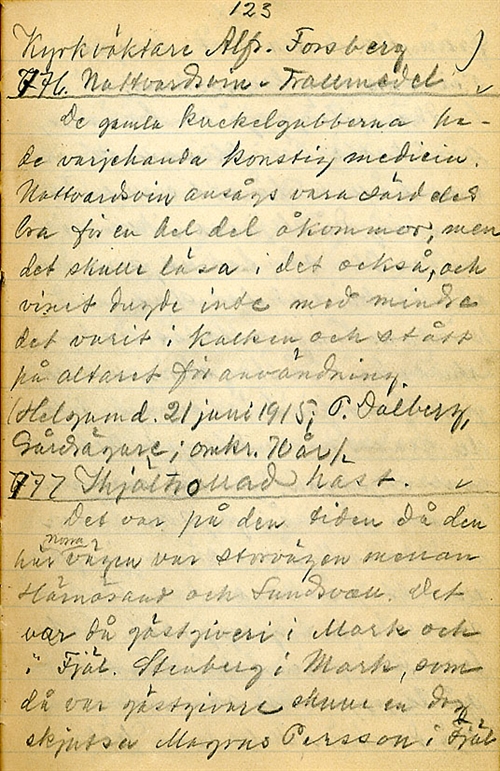 123
Kyrkväktare Alfr. Forsberg )
776. Nattvardsvin - Trollmedel
De gamla kuckelgubbarna ha-
de varjehanda konstig medicin.
Nattvardsvin ansågs vara särdeles
bra för en hel del åkommor, men
det skulle läsa i det också, och
vinet dugde inte med mindre
det varit i kalken och stått
på altaret för användning.
(Helgum d. 21 juni 1915; P. Dalberg,
Gårdsägare; omkr. 70 år/.
777 Ihjältrollad häst.
Det var på den tiden då den
här norra vägen var storvägen mellan
Härnösand och Sundsvall. Det
var då gästgiveri i Mark och
i Fjäl. Stenberg i Mark, som
då var gästgivare skulle en dag
skjutsa Magnus Persson i Fjäl